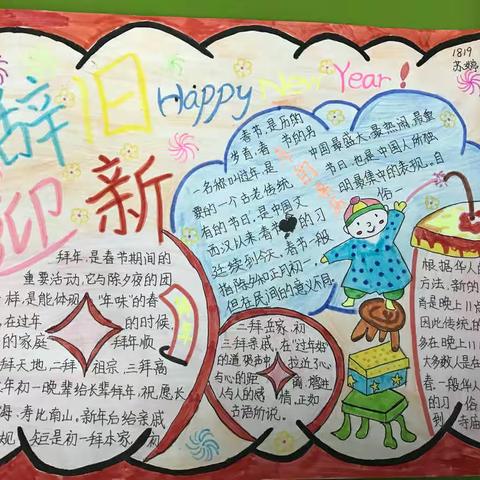 辞旧
迎新
Happy New Year!
1819
苏婷
春节,是历的
岁首,春节的另
一名称叫过年,是
要的一个古老传统
有的节日,是中国文
西汉以来,春节的习
延续到今天,春节一般
指除夕和正月初一
但在民间的意义
中国最盛大、最热闹、最重
节日,也是中国人所独
明最集中的表现。自
俗一
拜年,是春节期间的
重要活动,它与除夕夜的团
样,是能体现"年味"的春
在过年的时候,
的家庭拜年顺
拜天地,二拜祖宗,三拜高
年初一晚辈给长辈拜年,祝愿长
海、寿比南山,新年后给亲戚
短是初一拜本家,初
二拜岳家,初
三拜亲戚,在"过年好"
的道贺声中,拉近了心
与心的距离,增进
人与人的感情,正如
古语所说。
根据华人的
方法,新的
首是晚上11点
因此传统的
多在晚上11
大多数人是在
春,一般华人
的习俗
到寺庙